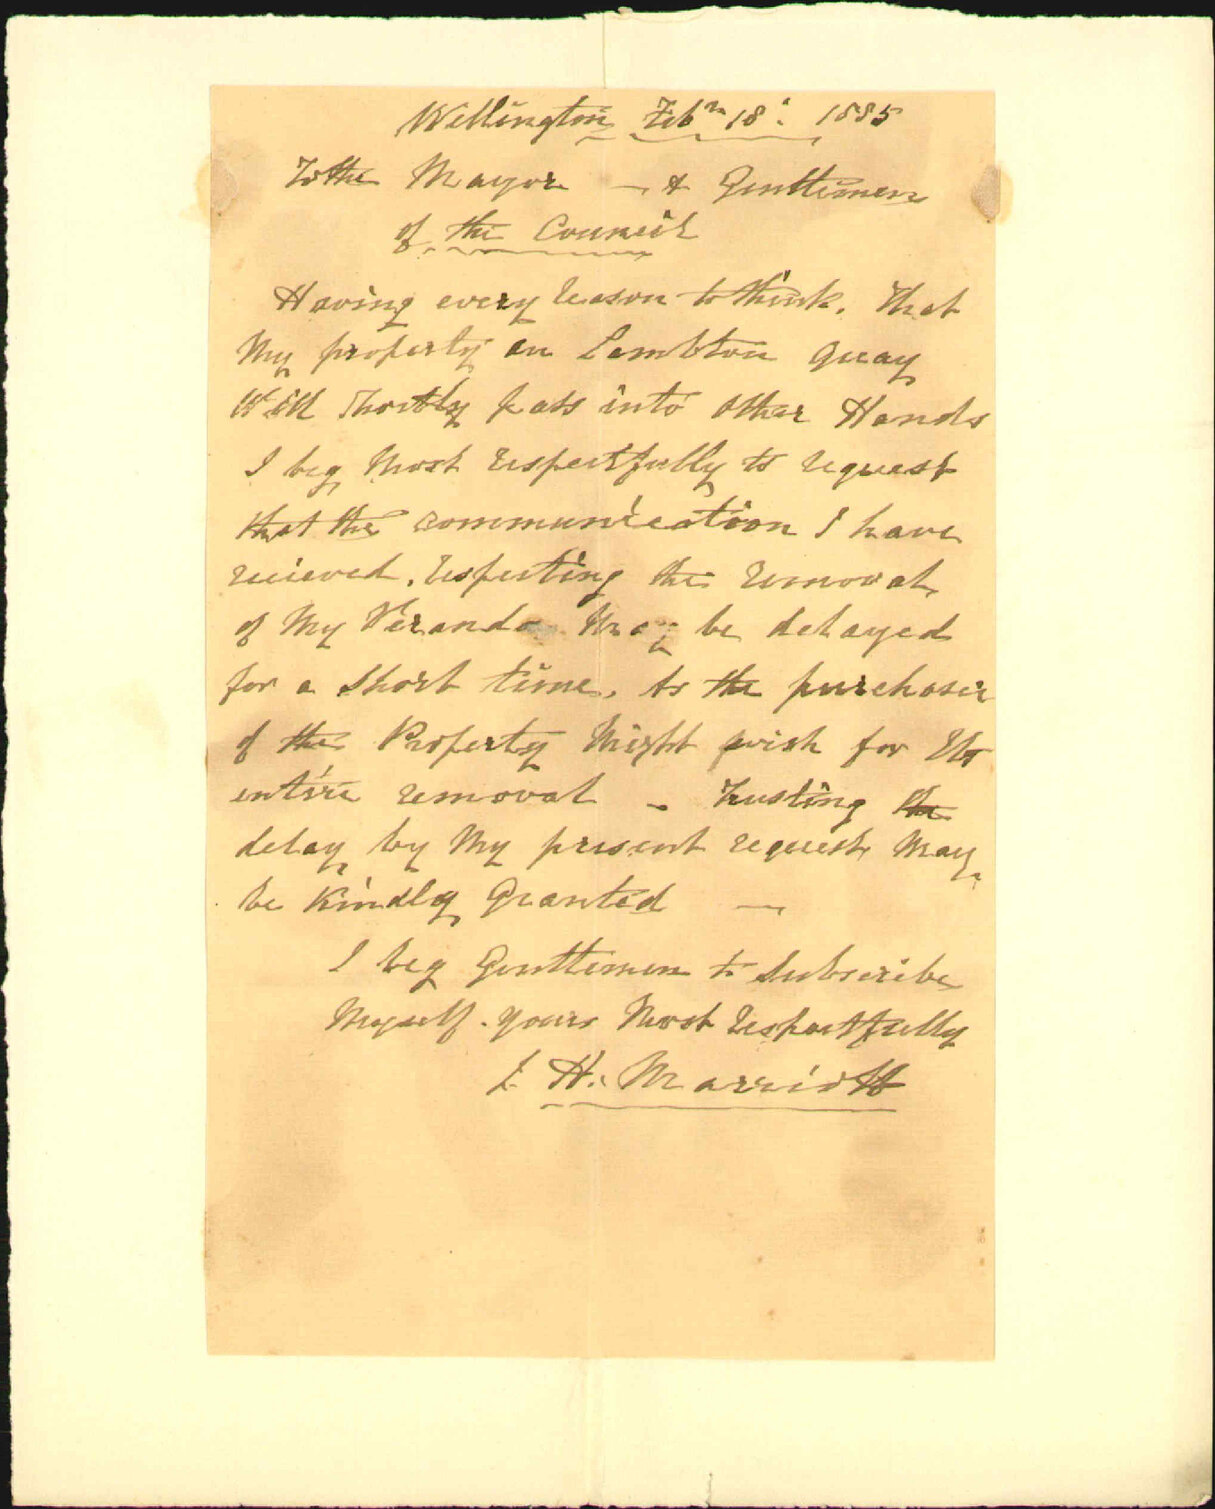 Wellington Febry 18. 1885
To the Mayor — & Gentlemen
of the Council
Having every reason to think. That
My property on Lambton Quay
Will Shortly pass into Other Hands
I beg Most respectfully to request
that the communication I have
recieved. respecting the removal
of My Veranda May be delayed
for a Short time. As the purchaser
of the Property Might wish for Its
entire removal – Trusting the
delay by My present request May
be Kindly Granted —
I beg Gentlemen to Subscribe
Myself. Yours Most respectfully
J. H. Marriott